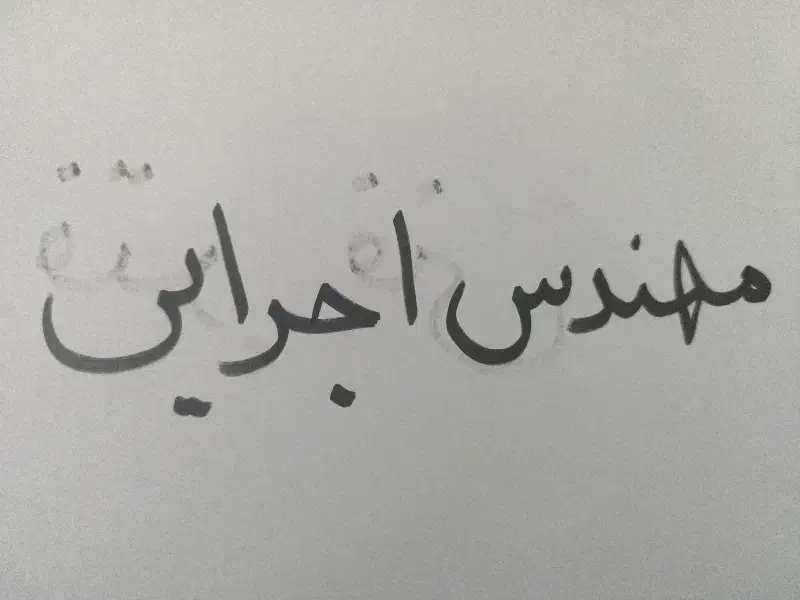 مهندس اجرایی